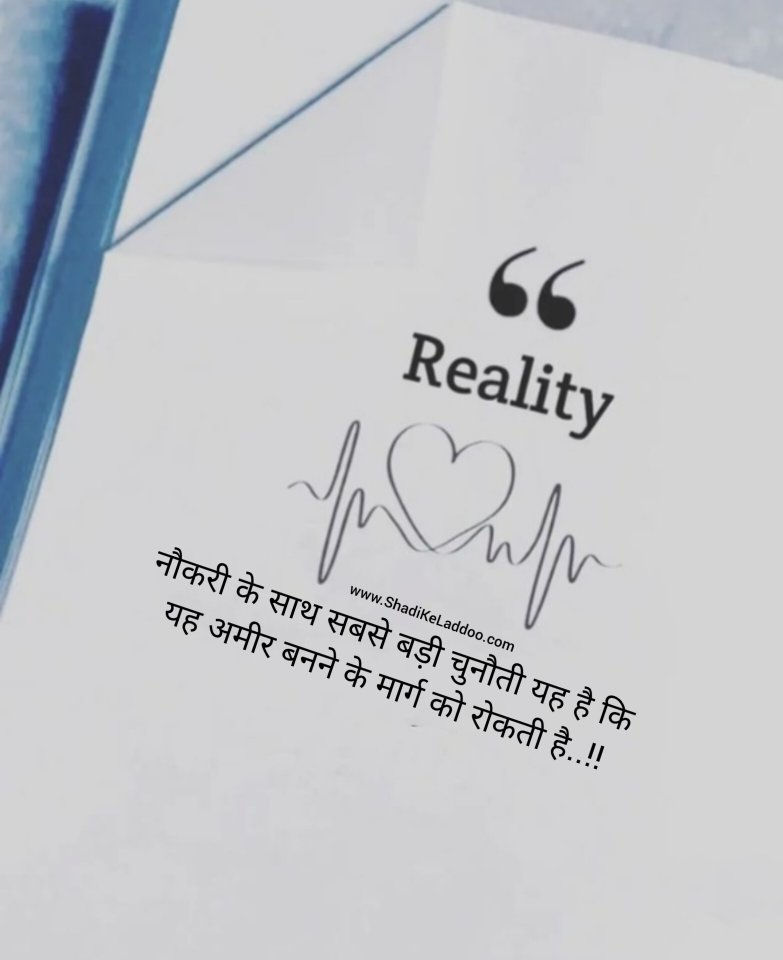 “
Reality
www.ShadiKeLaddoo.com
नौकरी के साथ सबसे बड़ी चुनौती यह है कि
यह अमीर बनने के मार्ग को रोकती है..!!